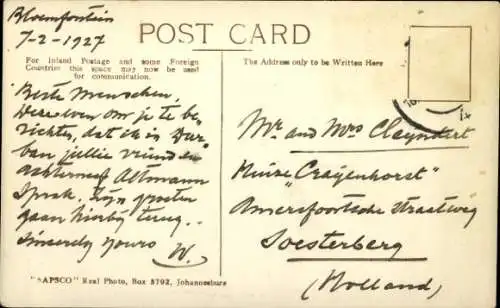 Bloemfontein
7-2-1927
POST CARD
For Inland Postage and some Foreign
Countries this space may now be used
for communication.
The Address only to be Written Here
Beste Menschen,
Deze even om je te be-
richten, dat ik in Dur-
ban jullie vriend en
achterneef Altmann
sprak. Zijn groeten
gaan hierbij terug.
Sincerely yours
W.
Mr. and Mrs Clayndert
Huize "Crayenhorst"
Amersfoortsche straatweg
Soesterberg
(Holland)
"SAPSCO" Real Photo, Box 5792, Johannesburg